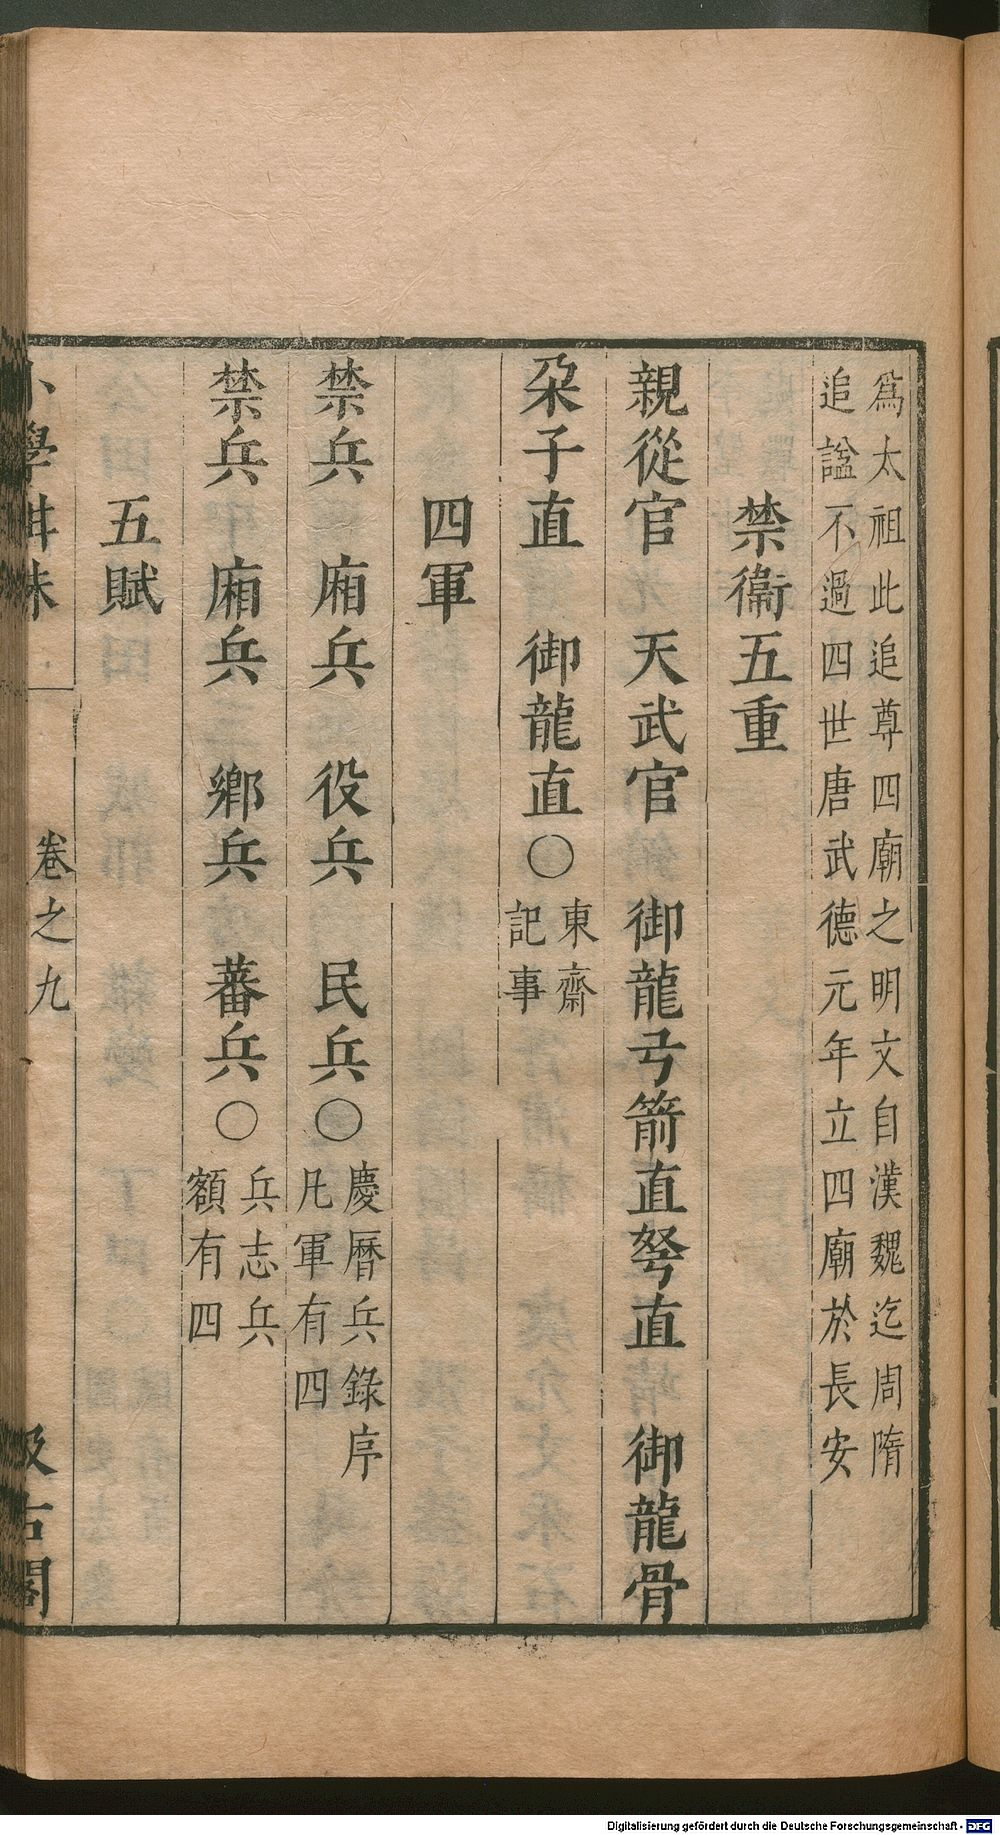 爲太祖此追尊四廟之明文自漢魏迄周隋
追諡不過四世唐武德元年立四廟於長安
禁衞五重
親從官　天武官　御龍弓箭直弩直　御龍骨
朶子直　御龍直○東齋
記事
四軍
禁兵　廂兵　役兵　民兵○慶曆兵錄序
凡軍有四
禁兵　廂兵　鄉兵　蕃兵○兵志兵
額有四
五賦
小學紺珠　卷之九　汲古閣
Digitalisierung gefördert durch die Deutsche Forschungsgemeinschaft - DFG